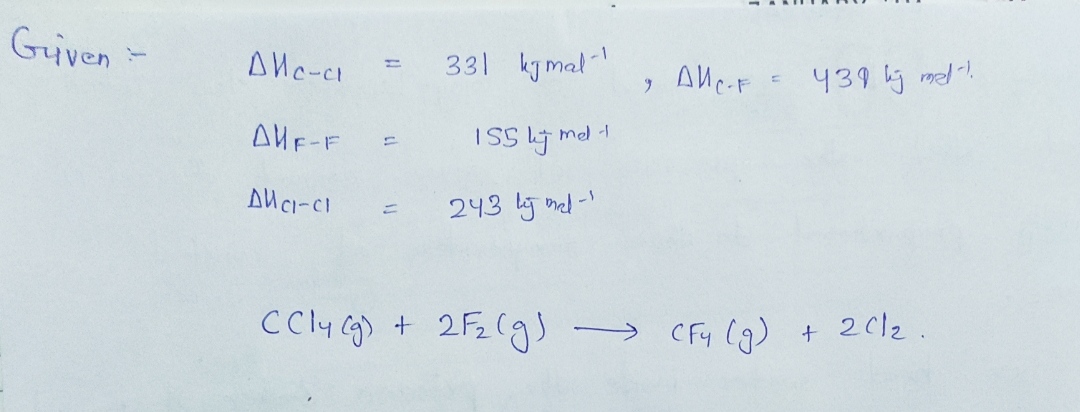 Given :-
ΔHC-Cl = 331 kJ mol-1 , ΔHC-F = 439 kJ mol-1.
ΔHF-F = 155 kJ mol-1
ΔHCl-Cl = 243 kJ mol-1
CCl4 (g) + 2F2 (g) → CF4 (g) + 2Cl2 .